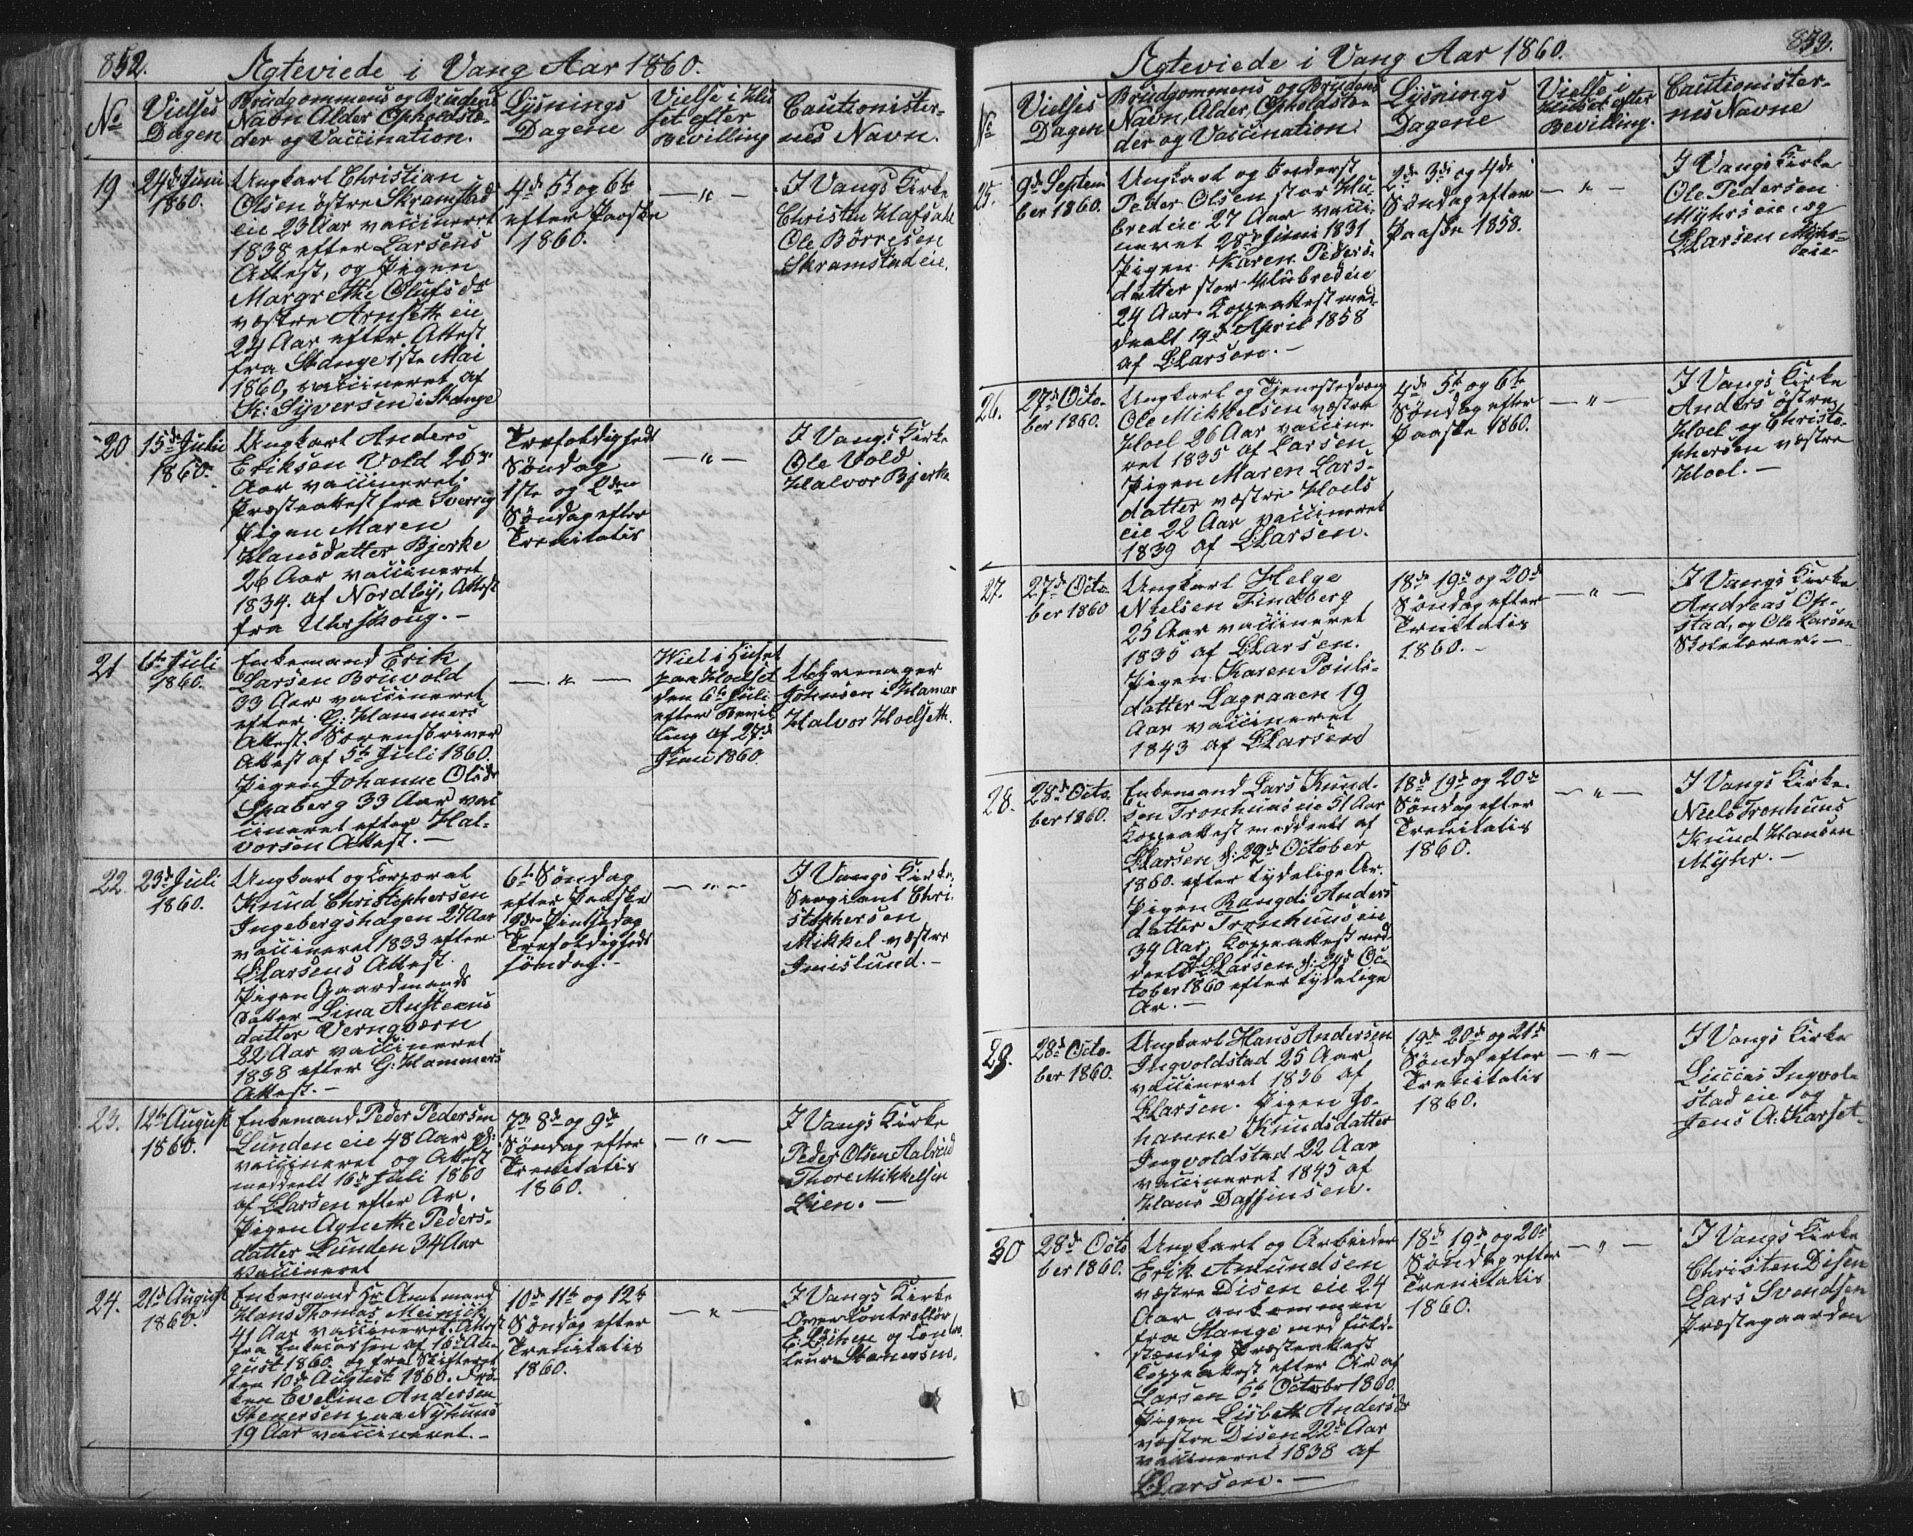 852.
Ægteviede i Vang Aar 1860.
No
Vielses
Dagen
Brudgommens og Brudens
Navn Alder Opholdste-
der og Vaccination.
Lysnings
Dagene
Vielse i Hu
set efter
Bevilling
Cautionister-
nes Navn.
19
24de Juni
1860.
Ungkarl Christian
Olsen østre Skramstad
eie 23 Aar vaccineret
1838 efter Larsens
Attest, og Pigen
Margrethe Olufsdr
vestre Arnseth eie
24 Aar efter Attest
fra Stange 1ste Mai
1860, vaccineret af
K: Syversen i Stange
4de 5te og 6te
efter Paaske
1860.
— " —
I Vangs Kirke
Christen Hafsal
Ole Børresen
Skramstadeie.
20
15de Juli
1860.
Ungkarl Anders
Eriksen Vold 26
Aar vaccineret
Præsteattest fra Sverrig
Pigen Maren
Hansdatter Bjerke
26 Aar vaccineret
1834. af Nordby, Attest
fra Ullershoug. —
Trefoldigheds
Søndag
1ste og 2den
Søndag efter
Trenitatis
— " —
I Vangs Kirke
Ole Vold
Halvor Bjerke
21
6te Juli
1860.
Enkemand Erik
Larsen Bruvold
33 Aar vaccineret
efter G: Hammers
Attest. Sorenskriver
Attest af 5te Juli 1860.
Pigen Johanne Olsdr
Spaberg 33 Aar vac
cineret efter Hal-
vorsen Attest. —
— " —
Viel i Huset
paa Hoelset
den 6te Juli
efter Bevil
ling af 27de
Juni 1860
Uhrmager
Johnsen i Hamar
Halvor Hoelseth.
22
23de Juli
1860.
Ungkarl og Corporal
Knud Christophersen
Ingebergshagen 27 Aar
vaccineret 1833 efter
LLarsens Attest.
Pigen Gaardmands
datter Lina Austeens
datter Verngværn
22 Aar vaccineret
1838 efter G: Hammers
Attest. —
6te Søndag
efter Paaske
2den Pintsedag
Trefoldigheds
søndag. —
— " —
I Vangs Kirke,
Sergiant Chri
stophersen
Mikkel vestre
Imislund. —
23.
12te August
1860.
Enkemand Peder Pedersen
Lunden eie 48 Aar
vaccineret og Attest
meddeelt 16de Juli 1860
af LLarsen efter Ar.
Pigen Agnethe Peders-
datter Lunden 34 Aar
vaccineret
7de 8de og 9de
Søndag efter
Trenitatis
1860.
— " —
I Vangs Kirke
Peder Olsen Aalstad
Thore Mikkelsen
Lien. —
24.
21de August
1860.
Enkemand Hr Amtmand
Hans Thomas Meinich
41 Aar vaccineret. Attest
fra Enkecassen af 16de Au-
gust 1860 og fra Skifteret
ten 10de August 1860. Frø
ken Eveline Andersen
Stenersen paa Nyhuus
19 Aar vaccineret. —
10de 11te og 12te
Søndag efter
Trenitatis
1860.
— " —
I Vangs Kirke
Over Controllør
E: Løchen og Contro
leur Stenersen.
853.
Ægteviede i Vang Aar 1860.
No
Vielses
Dagen
Brudgommens og Brudens
Navn, Alder, Opholdste-
der og Vaccination
Lysnings
Dagene
Vielse i
Huset efter
Bevilling.
Cautionister-
nes Navne
25.
9de Septem
ber 1860.
Ungkarl og Inderst
Peder Olsen stor Hu
bred eie 27 Aar vacci
neret 28de Juni 1831
Pigen Karen Peders-
datter stor Hubred eie
24 Aar Koppeattest med
deelt 19de April 1858
af LLarsen. —
2de 3de og 4de
Søndag efter
Paaske 1858.
— " —
I Vangs Kirke
Ole Pedersen
Myhrseie, og
LLarsen Myhrs-
eie
26.
27de Octo
ber 1860.
Ungkarl og Tjenestedreng
Ole Mikkelsen vestre
Hoel 26 Aar vaccine
ret 1835 af Larsen
Pigen Maren Lars-
datter vestre Hoels
eie 22 Aar vaccineret
1839 af LLarsen.
4de 5te og 6te
Søndag efter
Paaske 1860.
— " —
I Vangs Kirke
Anders østre
Hoel og Christo
phersen vestre
Hoel. —
27.
27de Octo
ber 1860
Ungkarl Helge
Nielsen Findberg
25 Aar vaccineret
1835 af LLarsen.
Pigen Karen Pouls-
datter Lagraaen 19
Aar vaccineret
1843 af LLarsen
18de 19de og 20de
Søndag efter
Trenitatis
1860. —
— " —
I Vangs Kirke
Andreas Op-
stad, og Ole Larsen
Skolelærer. —
28.
28de Octo
ber 1860.
Enkemand Lars Knud-
sen Tronhuus eie 51 Aar
Koppeattest meddeelt af
LLarsen d: 22de October
1860. efter tydelige Ar.
Pigen Rangdi Anders
datter Tronhuus eie
34 Aar, Koppeattest med
deelt LLarsen d: 24de Oc
tober 1860 efter tydelige
Ar. —
18de 19de og 20de
Søndag efter
Trenitatis
1860.
— " —
I Vangs Kirke.
Niels Tronhuus
Knud Hansen
Myhr. —
29.
28de Octo-
ber 1860.
Ungkarl Hans Andersen
Ingvoldstad 25 Aar
vaccineret 1836 af
LLarsen. Pigen Jo-
hanne Knudsdatter
Ingvoldstad 22 Aar
vaccineret 1845 af
Hans Daffinsen.
19de 20de og 21de
Søndag efter
Trenitatis
1860.
— " —
I Vangs Kirke
Luccas Ingvol
stad eie og
Jens A: Karset
30
28de Octo
ber 1860.
Ungkarl og Arbeider
Erik Amundsen
vestre Disen eie 24
Aar ankommen
fra Stange med fuld-
stændig Præsteattest
Koppeattest efter Ar af
Larsen 6te Octobr 1860.
Pigen Lisbeth Andersdr
vestre Disen 22de Aar
vaccineret 1838 af
LLarsen. —
18de 19de og 20de
Søndag efter
Trenitatis
1860.
— " —
I Vangs Kirke
Christen Disen
Lars Svendsen
Præstegaarden